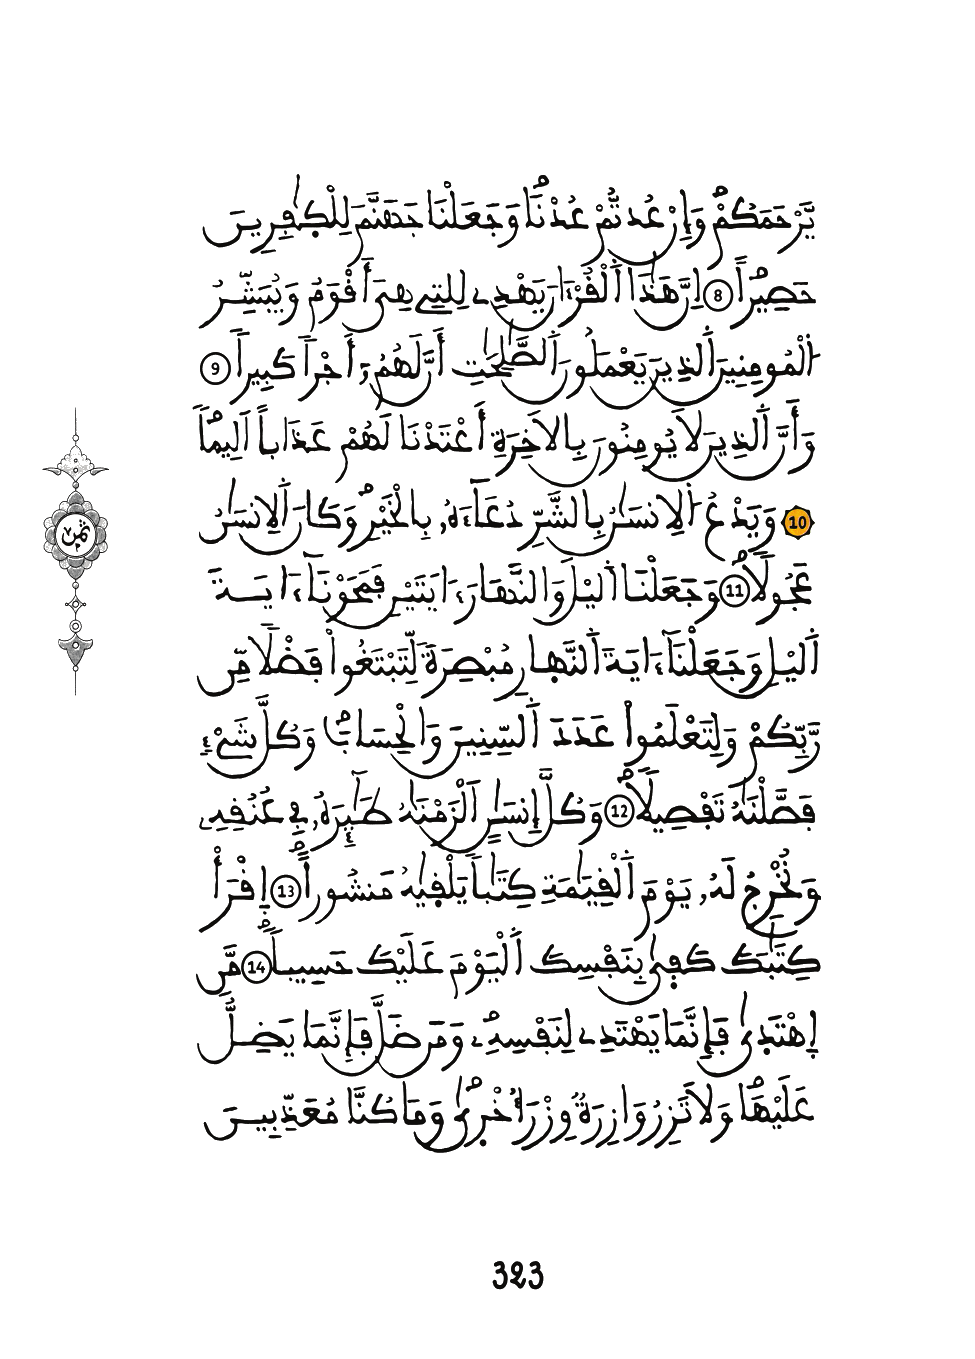 يَّرْحَمَكُمْ وَإِنْ عُدتُّمْ عُدْنَا وَجَعَلْنَا جَهَنَّمَ لِلْكٰفِرِينَ
حَصِيراً 8 اِنَّ هَٰذَا اَ۬لْقُرْءَانَ يَهْدِے لِلتِے هِيَ أَقْوَمُ وَيُبَشِّرُ
اُ۬لْمُومِنِينَ اَ۬لذِينَ يَعْمَلُونَ اَ۬لصَّٰلِحَٰتِ أَنَّ لَهُمُۥٓ أَجْراً كَبِيراً 9
وَأَنَّ اَ۬لذِينَ لَا يُومِنُونَ بِالَاخِرَةِ أَعْتَدْنَا لَهُمْ عَذَاباً اَلِيماً
10 وَيَدْعُ اُ۬لِانسَٰنُ بِالشَّرِّ دُعَآءَهُۥ بِالْخَيْرِ وَكَانَ اَ۬لِانسَٰنُ
عَجُولاً 11 وَجَعَلْنَا اَ۬ليْلَ وَالنَّهَارَ ءَايَتَيْنِ فَمَحَوْنَآ ءَايَةَ
اَ۬ليْلِ وَجَعَلْنَآ ءَايَةَ اَ۬لنَّهِارِ مُبْصِرَةً لِّتَبْتَغُواْ فَضْلاً مِّن
رَّبِّكُمْ وَلِتَعْلَمُواْ عَدَدَ اَ۬لسِّنِينَ وَالْحِسَابَ وَكُلَّ شَيْءٍ
فَصَّلْنَٰهُ تَفْصِيلاً 12 وَكُلَّ إِنسَٰنٍ اَلْزَمْنَٰهُ طَٰٓئِرَهُۥ فِے عُنُقِهِۦ
وَنُخْرِجُ لَهُۥ يَوْمَ اَ۬لْقِيَٰمَةِ كِتَٰباً يَلْقِيٰهُ مَنشُوراً 13 اِ۪قْرَأْ
كِتَٰبَكَ كَفِيٰ بِنَفْسِكَ اَ۬لْيَوْمَ عَلَيْكَ حَسِيباً 14 مَّنِ
اِ۪هْتَدِيٰ فَإِنَّمَا يَهْتَدِے لِنَفْسِهِۦ وَمَن ضَلَّ فَإِنَّمَا يَضِلُّ
عَلَيْهَا وَلَا تَزِرُ وَازِرَةٌ وِزْرَ أُخْرِيٰ وَمَا كُنَّا مُعَذِّبِينَ
ثمن
323